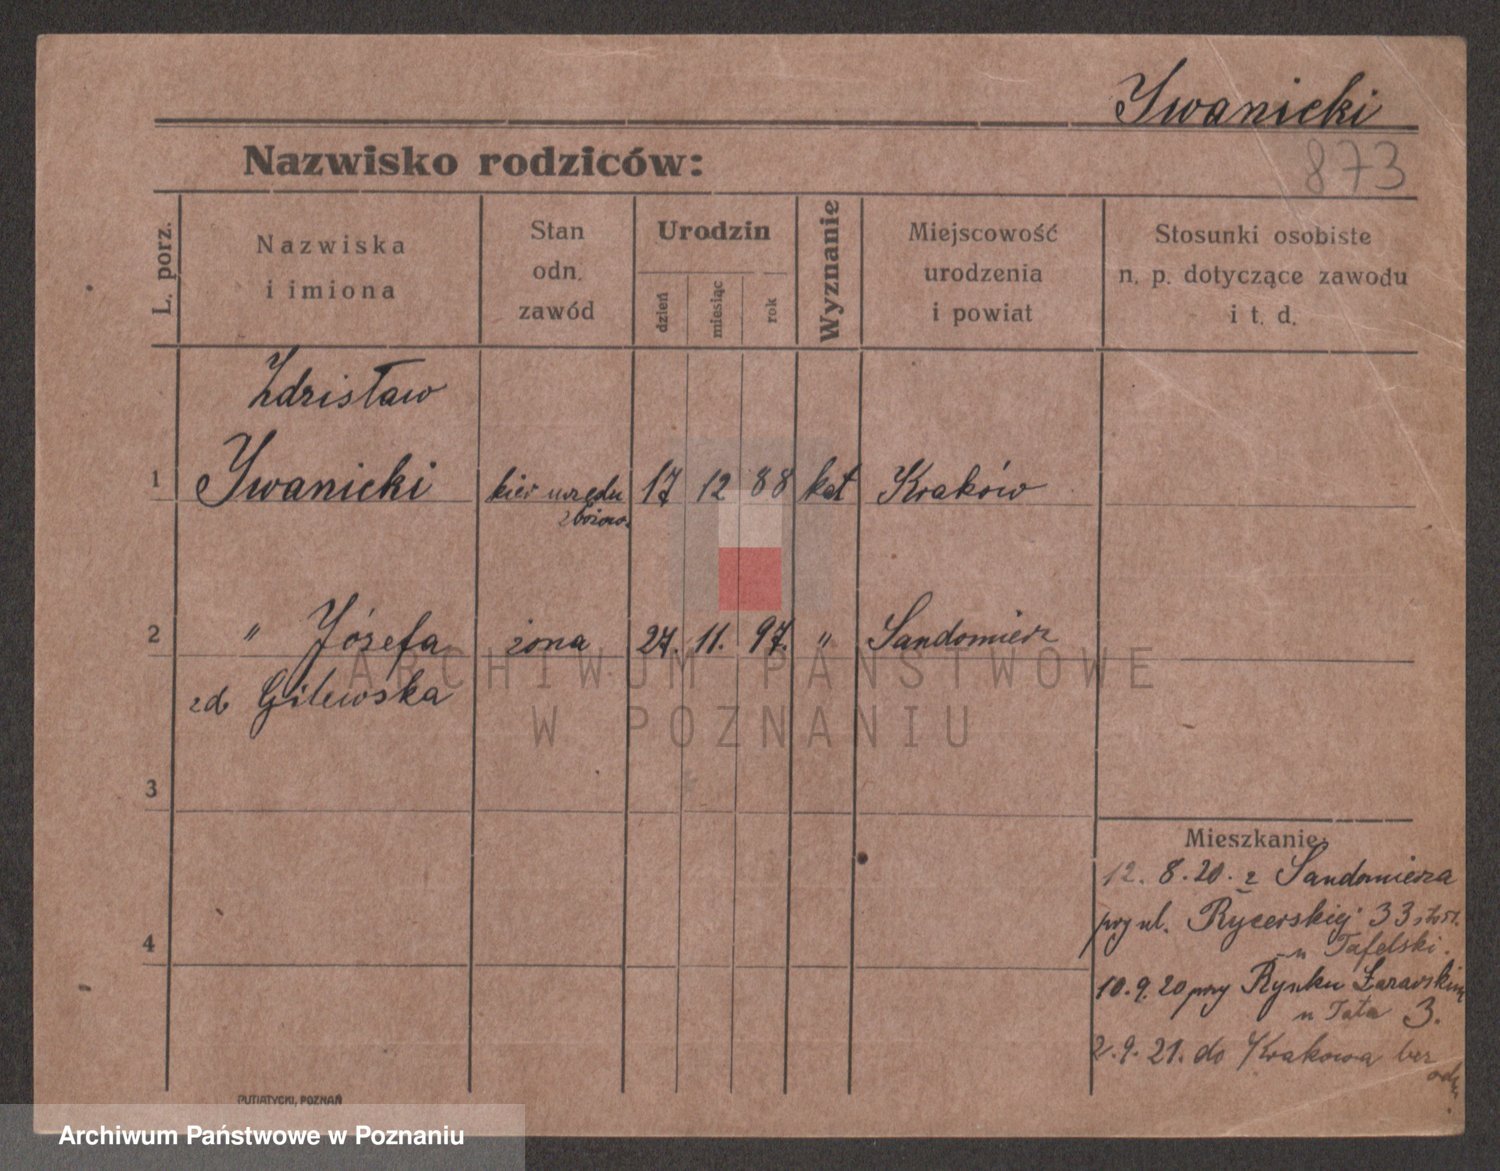 Iwanicki
Nazwisko rodziców:
873
L. porz.
Nazwiska
i imiona
Stan
odn.
zawód
Urodzin
dzień
miesiąc
rok
Wyznanie
Miejscowość
urodzenia
i powiat
Stosunki osobiste
n. p. dotyczące zawodu
i t. d.
Zdzisław
1 Iwanicki kier urzędu 17 12 88 kat Kraków
zbożow.
2 " Józefa żona 27. 11. 97. " Sandomierz
zd Gilewska
ARCHIWUM PAŃSTWOWE
W POZNANIU
3
4
Mieszkanie:
12. 8. 20. z Sandomierza
przy ul. Rycerskiej 33
u Tafelski.
10. 9. 20 przy Rynku Łazarskim
u Tata 3.
2. 9. 21. do Krakowa bez
PUTIATYCKI, POZNAŃ
Archiwum Państwowe w Poznaniu